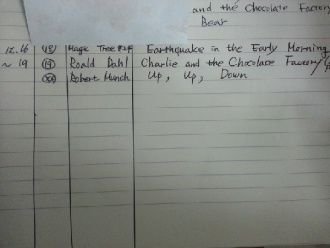 and the Chocolate Factory
Bear
12.16 48) Magic Tree #24 Earthquake in the Early Morning
~ 19 49 Roald Dahl Charlie and the Chocolate Factory/
50 Robert Munch Up, Up, Down